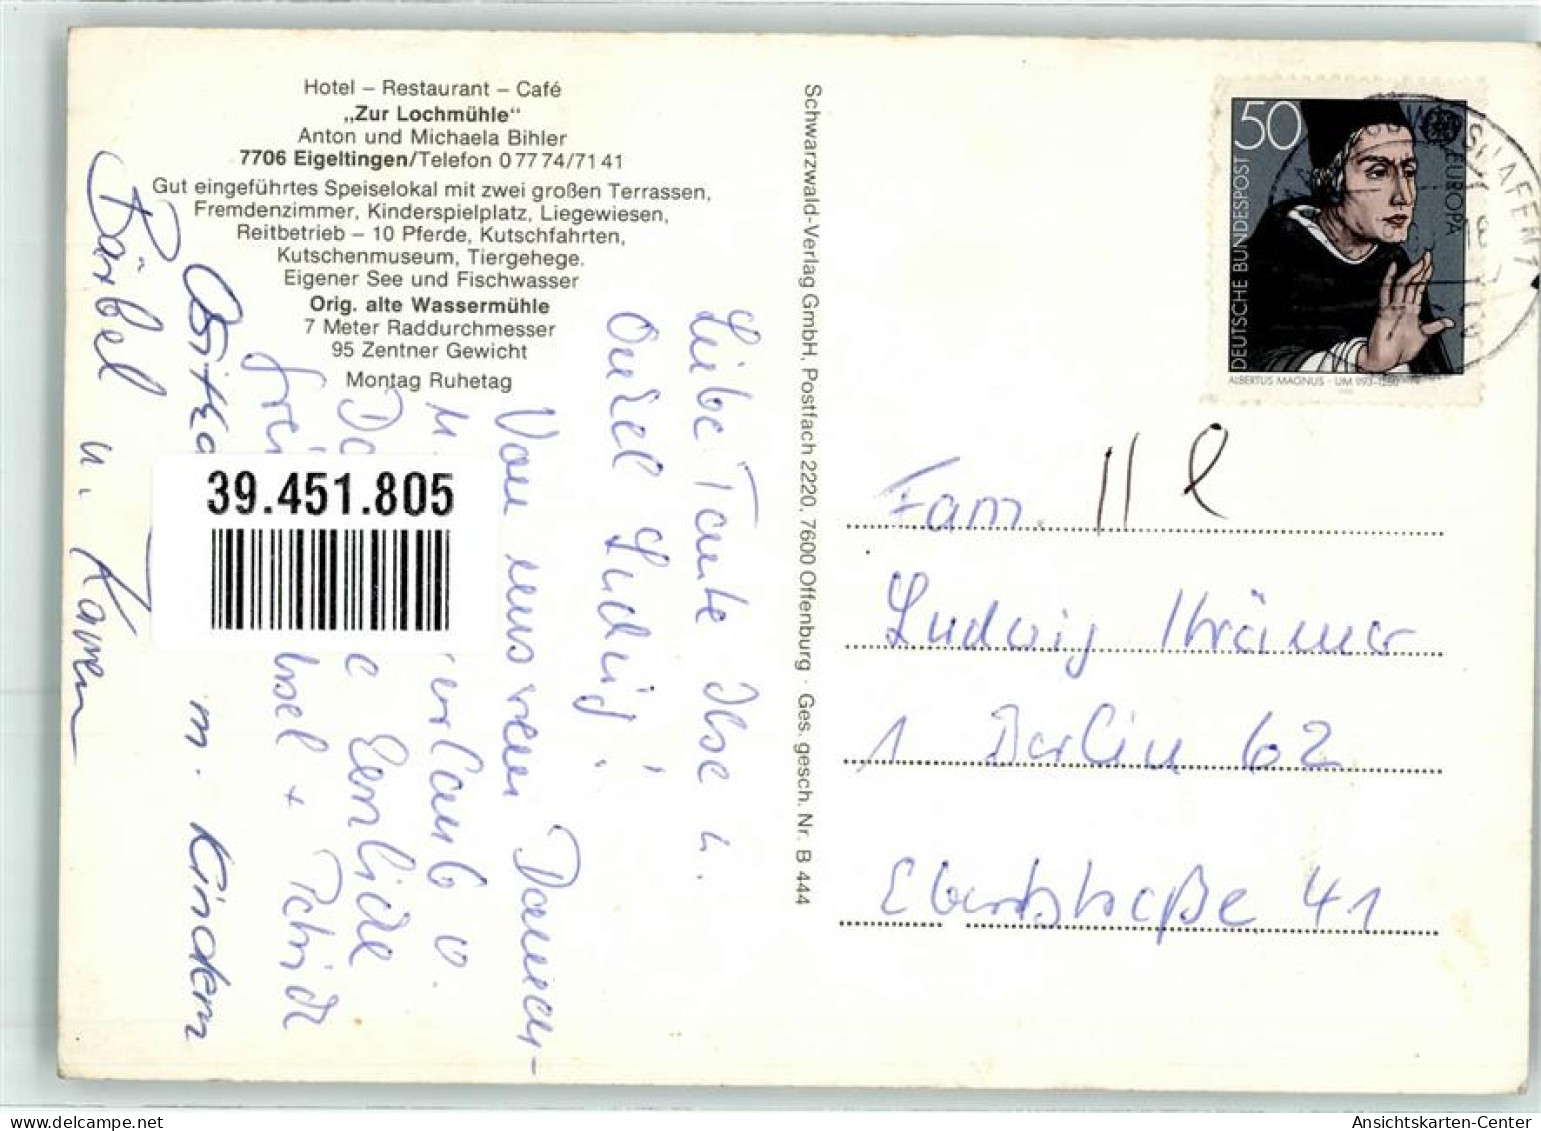 Hotel – Restaurant – Café
„Zur Lochmühle“
Anton und Michaela Bihler
7706 Eigeltingen/Telefon 0 77 74/71 41
Gut eingeführtes Speiselokal mit zwei großen Terrassen,
Fremdenzimmer, Kinderspielplatz, Liegewiesen,
Reitbetrieb – 10 Pferde, Kutschfahrten,
Kutschenmuseum, Tiergehege.
Eigener See und Fischwasser
Orig. alte Wassermühle
7 Meter Raddurchmesser
95 Zentner Gewicht
Montag Ruhetag
Liebe Tante Ilse u.
Onkel Ludwig!
Von unserem Dauer-
urlaub
m. Kindern
Bärbel u. Karen
39.451.805
Schwarzwald-Verlag GmbH, Postfach 2220, 7600 Offenburg · Ges. gesch. Nr. B 444
50
DEUTSCHE BUNDESPOST
EUROPA
ALBERTUS MAGNUS · UM 1193–1280
Fam.
Ludwig Krämer
1 Berlin 62
Ebertstraße 41
Ansichtskarten-Center